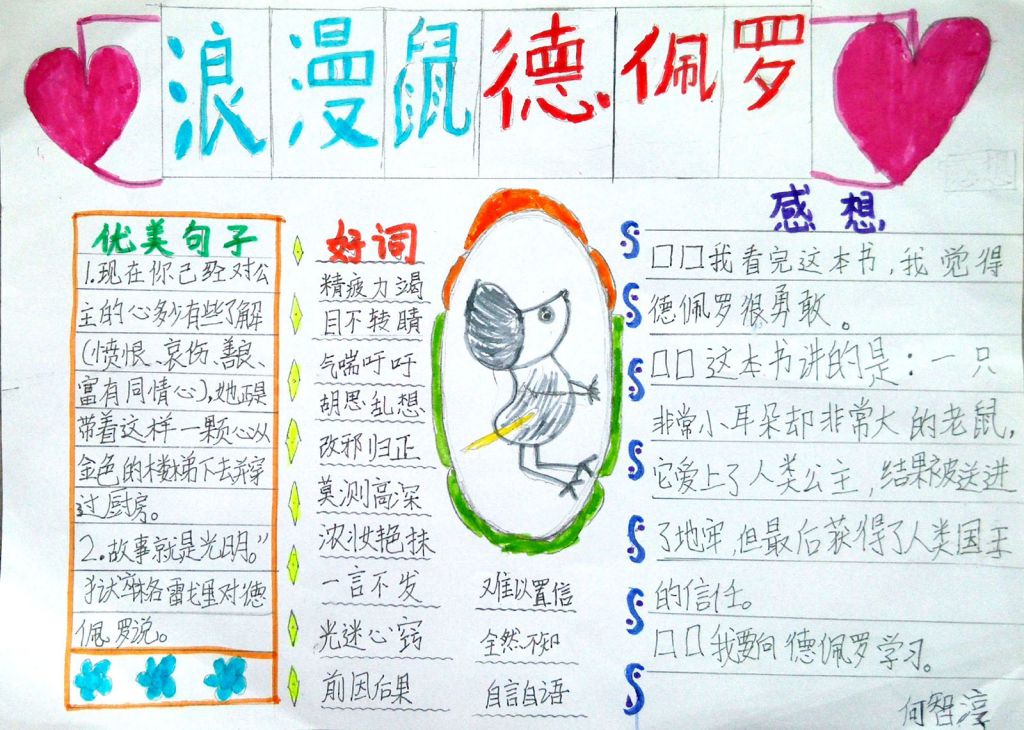 浪漫鼠德佩罗
优美句子
1.现在你已经对公
主的心多少有些了解
(愤恨、哀伤、善良、
富有同情心),她正是
带着这样一颗心从
金色的楼梯下去,穿
过厨房。
2.故事就是光明。”
狱卒格雷戈里对德
佩罗说。
好词
精疲力竭
目不转睛
气喘吁吁
胡思乱想
改邪归正
莫测高深
浓妆艳抹
一言不发
光迷心窍
前因后果
难以置信
全然不知
自言自语
感想
□□我看完这本书,我觉得
德佩罗很勇敢。
□□这本书讲的是:一只
非常小耳朵却非常大的老鼠,
它爱上了人类公主,结果被送进
了地牢,但最后获得了人类国王
的信任。
□□我要向德佩罗学习。
何智淳